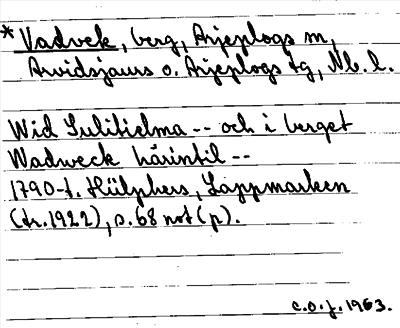 * Vadvek, berg, Arjeplogs sn,
Arvidsjaurs o. Arjeplogs tg, Nb. l.
Wid Sulitielma -- och i berget
Wadweck härintil --
1790-t. Hülphers, Lappmarken
(tr. 1922), s. 68 not (p).
C.O.J. 1963.